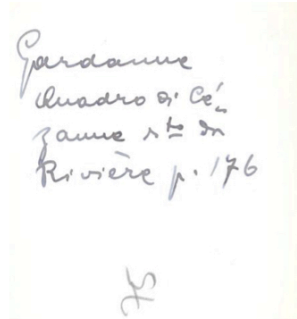 Gardanne
Quadro di Cé-
zanne r.to da
Rivière p. 176